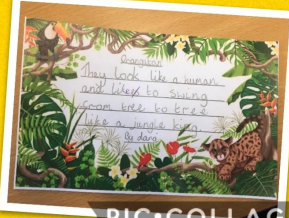 Orangutan
They look like a human
and likes to swing
from tree to tree
like a jungle king.
By dang
PIC•COLLAG